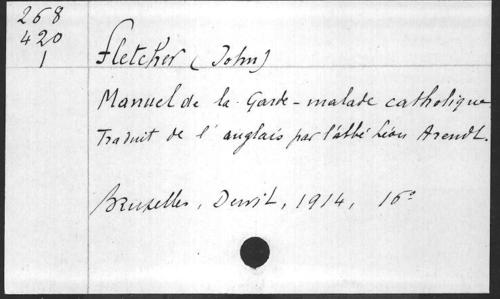 268
420
1
Fletcher (John)
Manuel de la Garde-malade catholique
Traduit de l'anglais par l'abbé Léon Arendt.
Bruxelles, Dewit, 1914, 16°